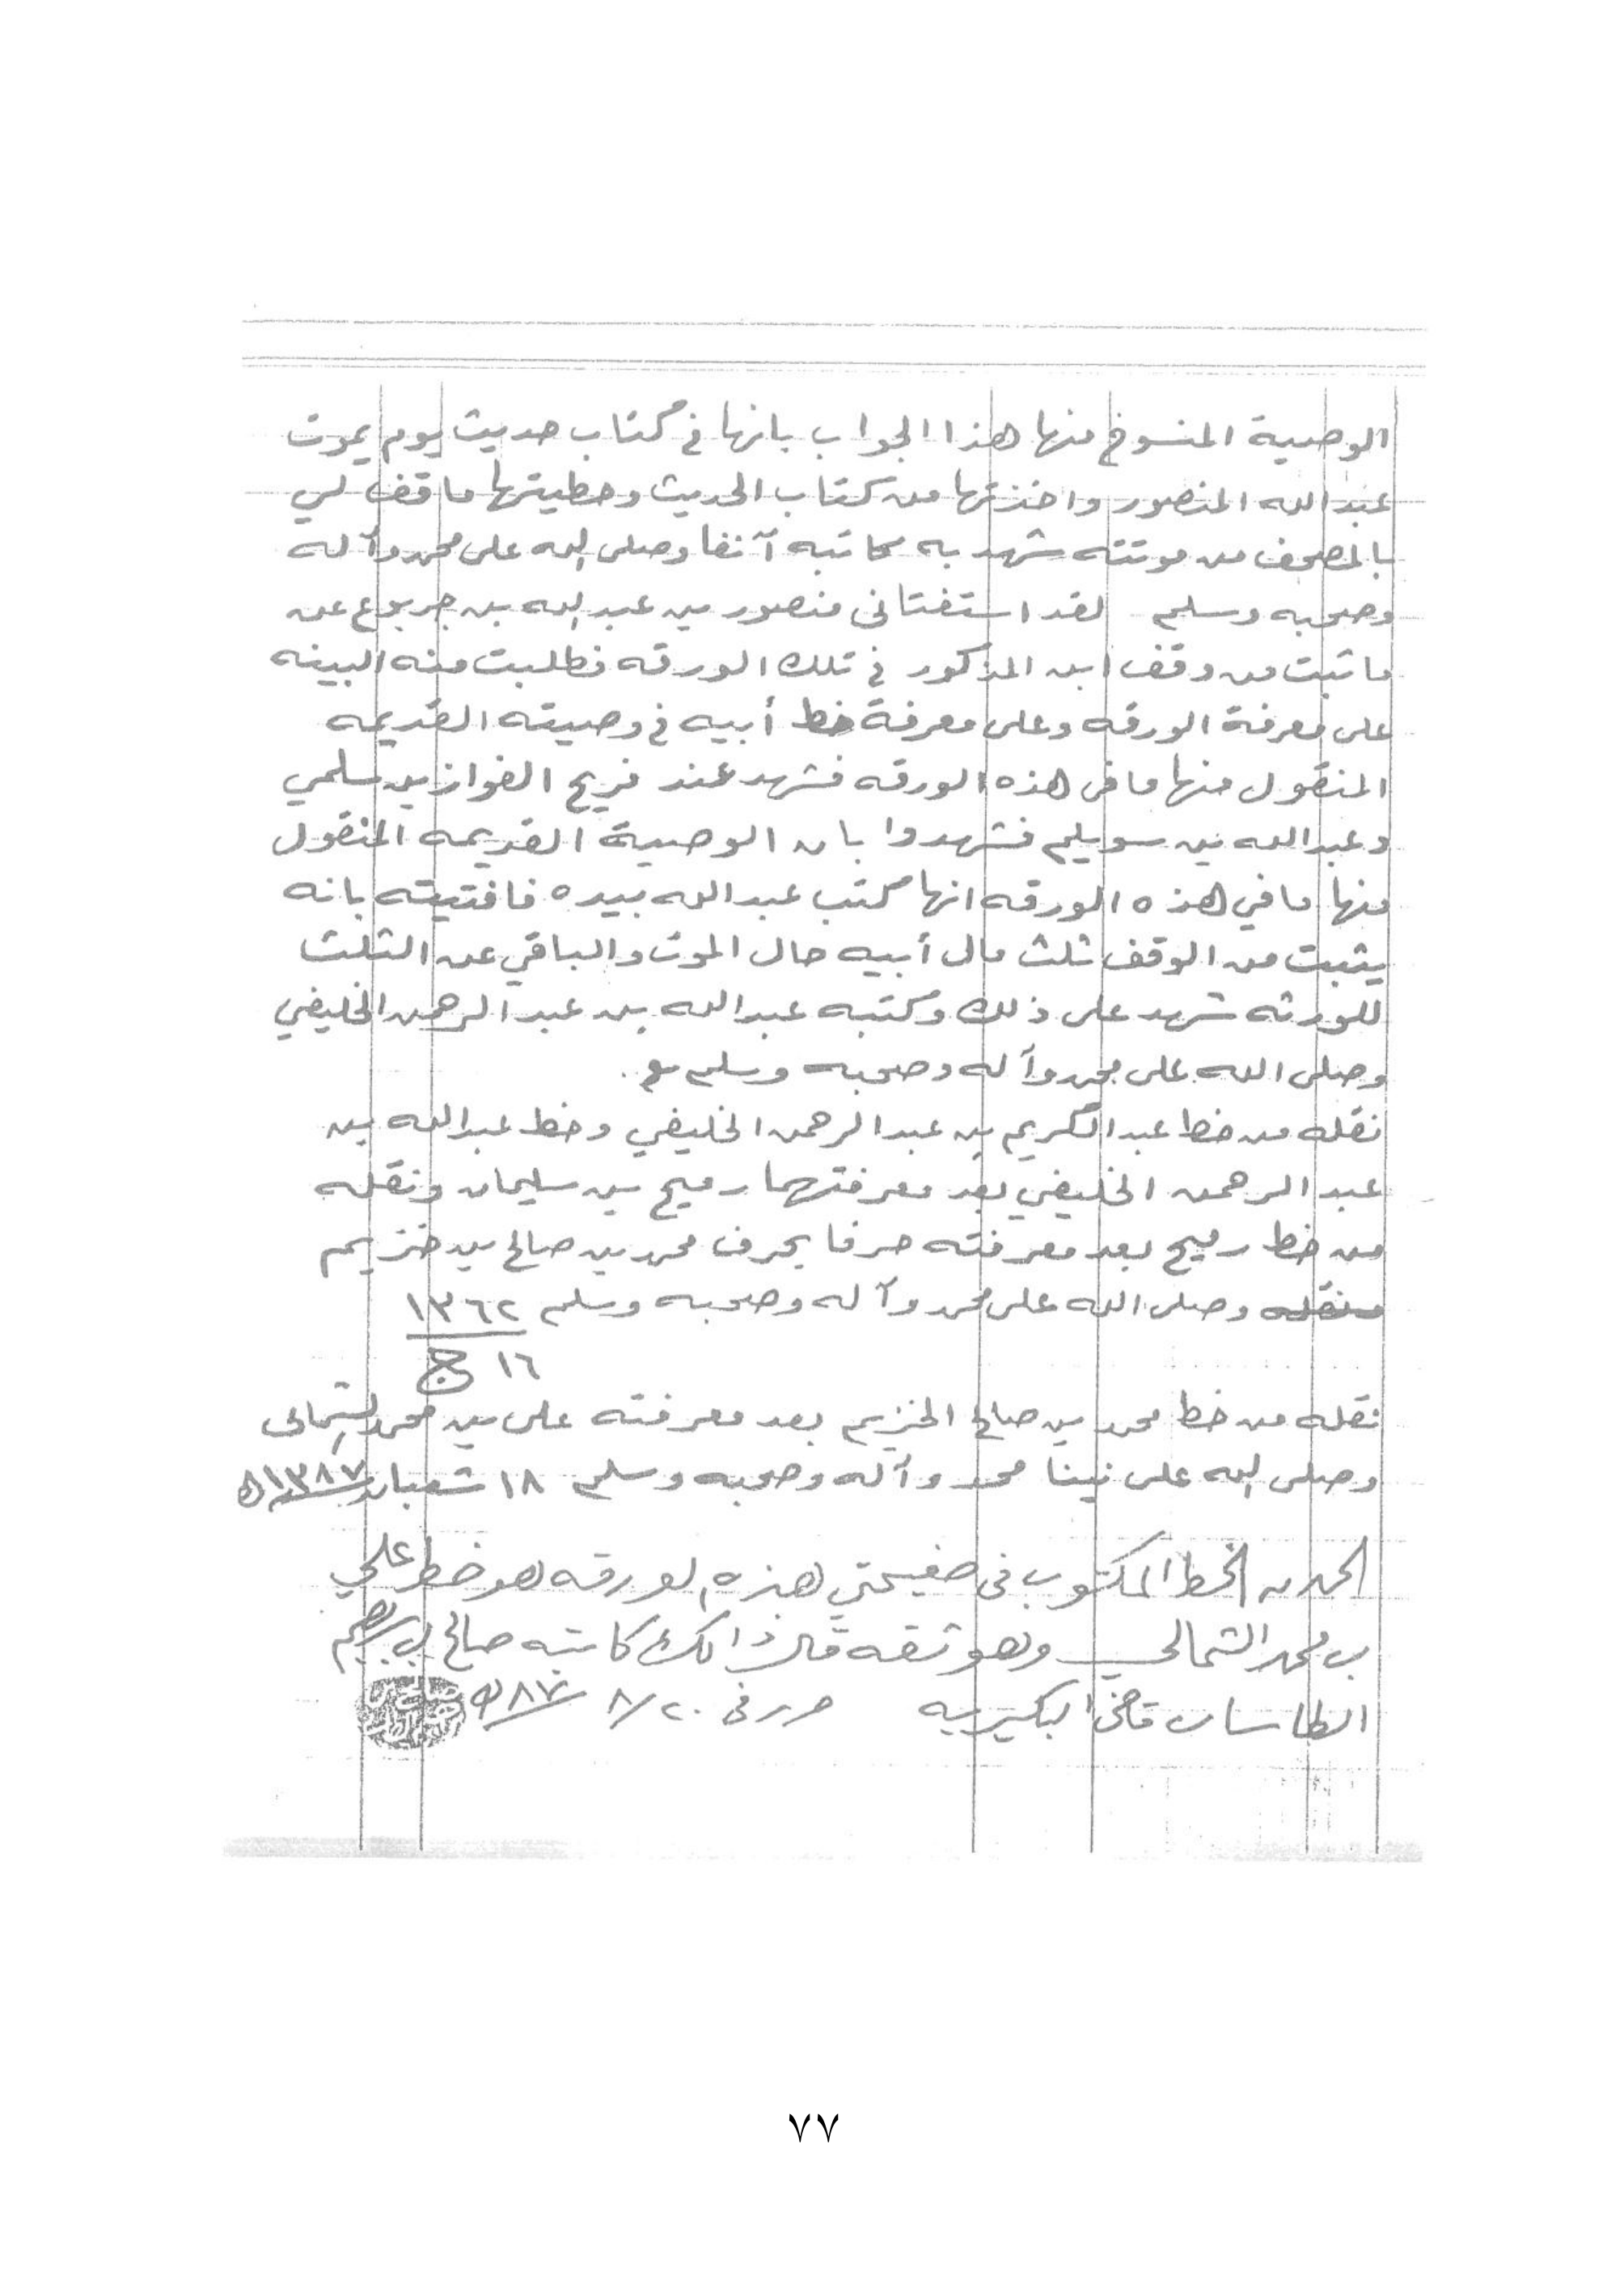 الوصية المنسوخ منها هذا الجواب بانها في كتاب حديث يوم يموت
عبدالله المنصور واخذتها من كتاب الحديث وحطيتها ماقف لي
بالمصحف من موتته شهد به كاتبه آنفا وصلى الله على محمد وآله
وصحبه وسلم لقد استفتاني منصور بن عبدالله بن جربوع عن
ما ثبت من وقف ابن المذكور في تلك الورقه فطلبت منه البينه
على معرفة الورقه وعلى معرفة خط أبيه في وصيته القديمه
المنقول منها ما في هذه الورقه فشهد عند فريح الفواز بن سلمي
وعبدالله بن سويلم فشهدوا بان الوصية القديمه المنقول
منها ما في هذه الورقه انها كتب عبدالله بيده فافتيته بانه
يثبت من الوقف ثلث مال أبيه حال الموت والباقي عن الثلث
للورثه شهد على ذلك وكتبه عبدالله بن عبدالرحمن الخليفي
وصلى الله على محمد وآله وصحبه وسلم
نقله من خط عبدالكريم بن عبدالرحمن الخليفي وخط عبدالله بن
عبدالرحمن الخليفي بعد معرفتهما رميح بن سليمان ونقله
من خط رميح بعد معرفته حرفا بحرف محمد بن صالح بن خزيم
وصلى الله على محمد وآله وصحبه وسلم ١٣٦٢
١٦ ج
نقله من خط محمد بن صالح الخزيم بعد معرفته على بن محمد الشمالى
وصلى الله على نبينا محمد وآله وصحبه وسلم ١٨ شعبان ١٣٨٧ ه
الحمد لله الخط المكتوب في صفيحتي هذه الورقه هو خط علي
بن محمد الشمالي وهو ثقه قال ذالك كاتبه صالح بن ابراهيم
الطاسان قاضي البكيريه حرر في ٢٠/٨/٨٧ه
٧٧